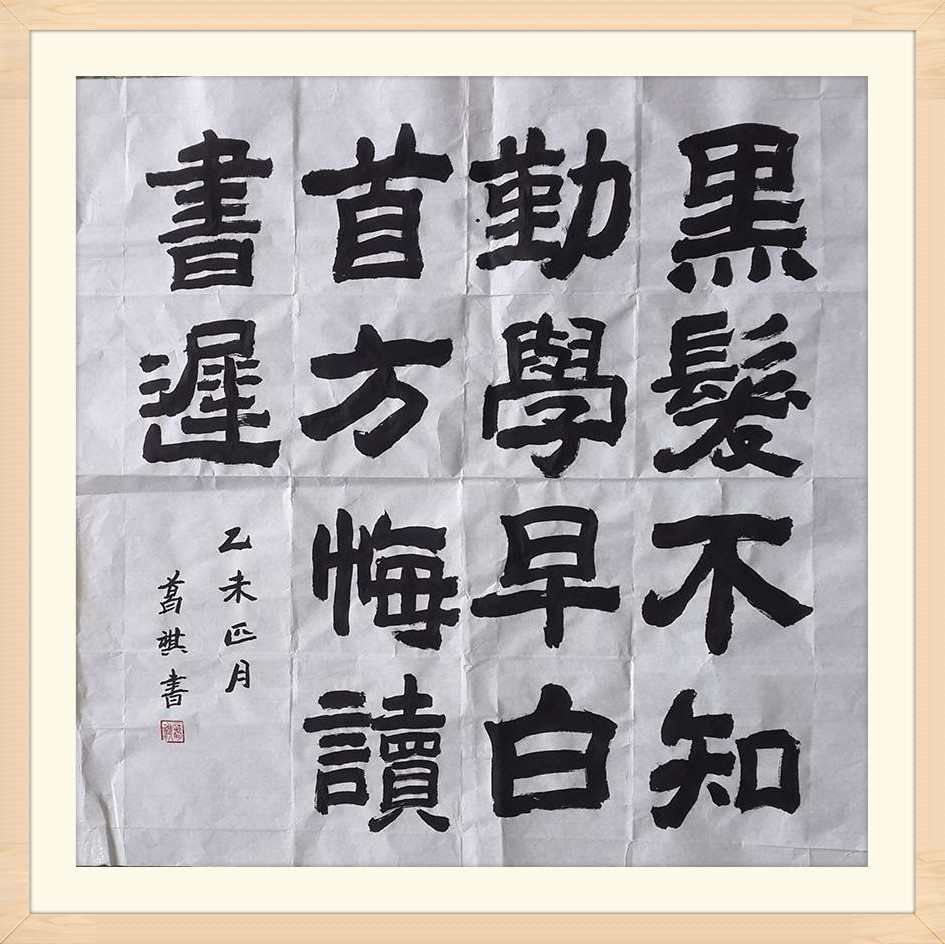 黑髮不知
勤學早白
首方悔讀
書遲
乙未四月
葛祺書